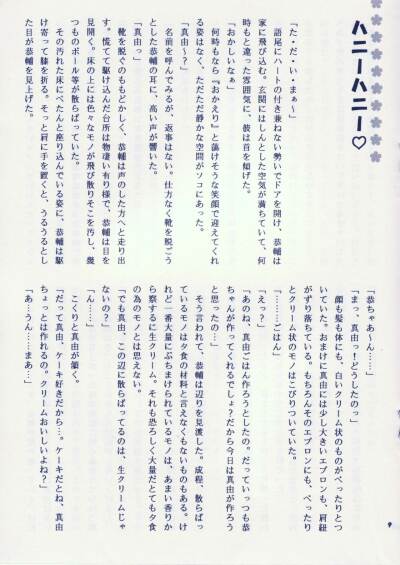 ハニーハニー♡
「た・だ・い・ま～」
語尾にハートの付き兼ねない勢いでドアを開け、恭輔は
家に飛び込む。玄関にはしんとした空気が満ちていて、何
時もと違った雰囲気に、彼は首を傾げた。
「おかしいなぁ」
何時もなら『おかえり』と蕩けそうな笑顔で迎えてくれ
る姿はなく、ただただ静かな空間がソコにあった。
「真由～？」
名前を呼んでみるが、返事はない。仕方なく靴を脱ごう
とした恭輔の耳に、高い声が響いた。
「真由っ」
靴を脱ぐのももどかしく、恭輔は声のした方へと走り出
す。慌てて駆け込んだ台所は物凄い有り様で、恭輔は目を
見開く。床の上には色々なモノが飛び散りそこを汚し、幾
つものボール等が散らばっていた。
その汚れた床にぺたんと座り込んでいる姿に、恭輔は駆
け寄って膝を折る。そっと肩に手を置くと、うるうるとし
た目が恭輔を見上げた。
「恭ちゃあ～ん……」
「まっ、真由っ！どうしたのっ」
顔も髪も体にも、白いクリーム状のものがべったりとつ
いていた。おまけに真由には少し大きいエプロンも、肩紐
がずり落ちている。もちろんそのエプロンにも、べったり
とクリーム状のモノはこびりついていた。
「………ごはん」
「えっ？」
「あのね、真由ごはん作ろうとしたの。だっていっつも恭
ちゃんが作ってくれるでしょ？だから今日は真由が作ろう
と思ったの…」
そう言われて、恭輔は辺りを見渡した。成程、散らばっ
ているモノは夕食の材料と言えなくもないものもある。け
れど一番大量にぶちまけられているモノは、あまい香りか
ら察するに生クリーム。それも恐ろしく大量だとても夕食
の為のモノとは思えない。
「でも真由、この辺に散らばってるのは、生クリームじゃ
ないの？」
「ん……」
こくりと真由が頷く。
「だって真由、ケーキ好きだから…。ケーキだとね、真由
ちょっとは作れるの。クリームおいしいよね？」
「あ…うん……まあ…」